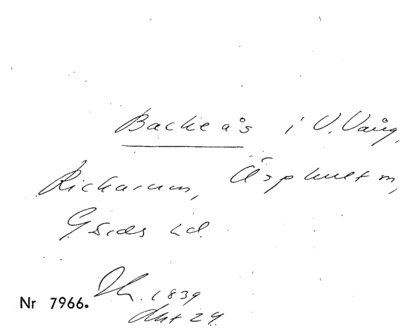 Backeås i V. Vång,
Rickarum, Äsphult m,
Gärds hd.
Nr 7966. 1839
Akt 24.